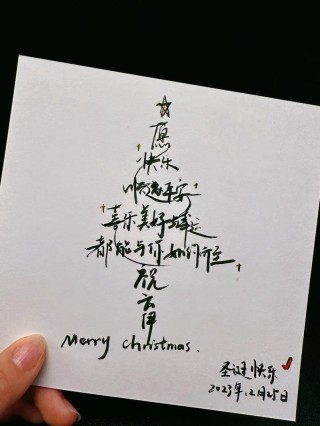 愿
快乐
顺遂平安
喜乐美好与幸运
都能与你如约而至
祝
Merry christmas.
圣诞快乐
2023年12月25日